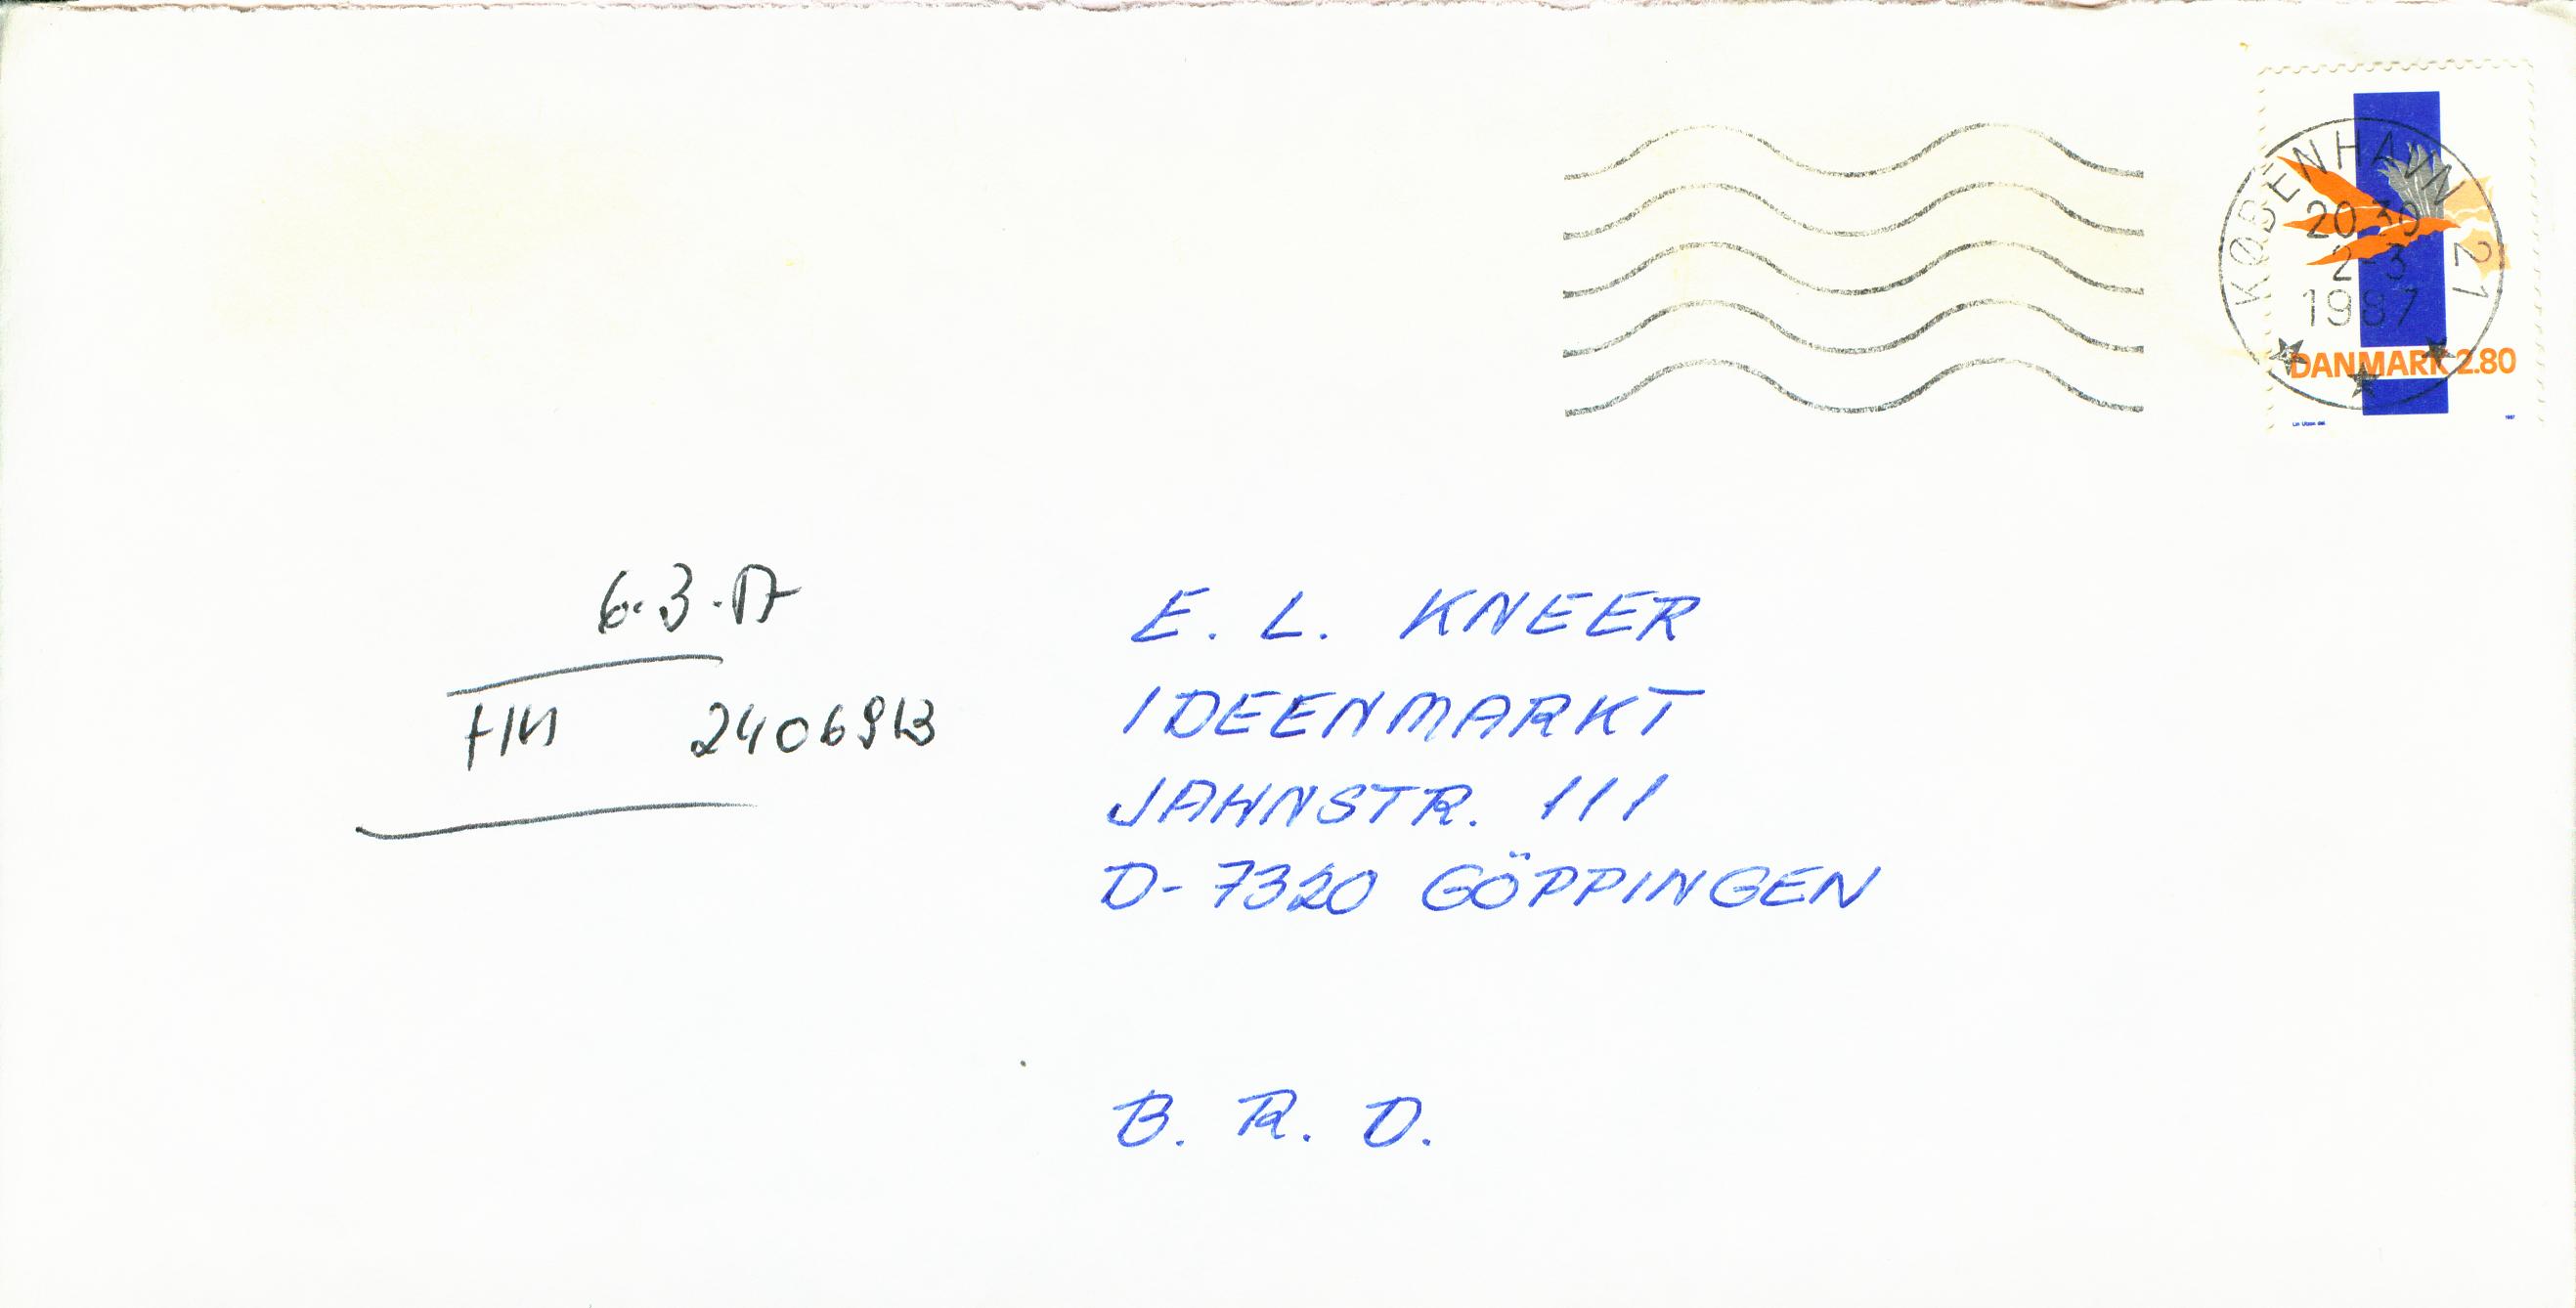 KØBENHAVN 21
20 30
2-3
1987
DANMARK 2.80
6.3.87
2406913
E. L. KNEER
IDEENMARKT
JAHNSTR. 111
D-7320 GÖPPINGEN
B. R. D.